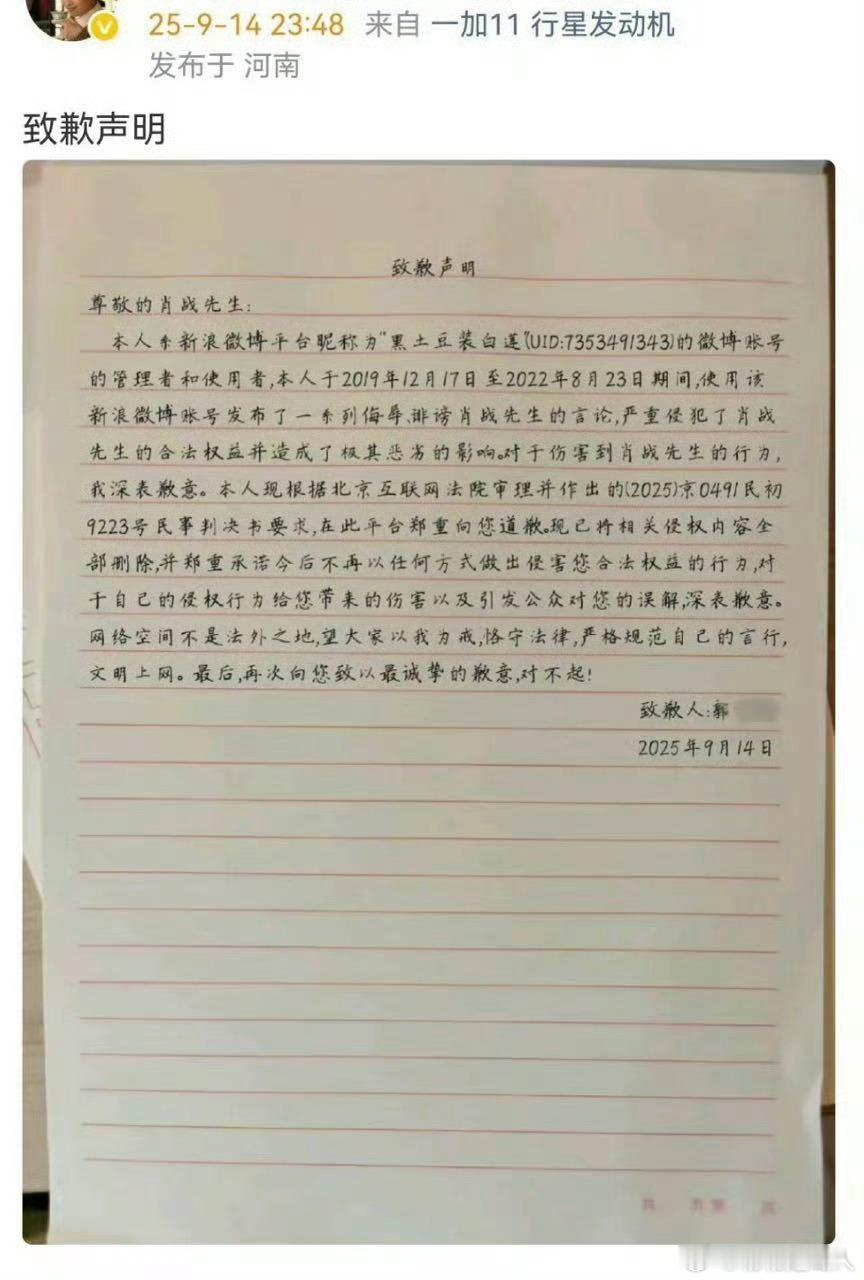 25-9-14 23:48 来自 一加11 行星发动机
发布于 河南
致歉声明
致歉声明
尊敬的肖战先生:
本人系新浪微博平台昵称为"黑土豆装白莲"(UID:7353491343)的微博账号
的管理者和使用者,本人于2019年12月17日至2022年8月23日期间,使用该
新浪微博账号发布了一系列侮辱、诽谤肖战先生的言论,严重侵犯了肖战
先生的合法权益并造成了极其恶劣的影响。对于伤害到肖战先生的行为,
我深表歉意。本人现根据北京互联网法院审理并作出的(2025)京0491民初
9223号民事判决书要求,在此平台郑重向您道歉。现已将相关侵权内容全
部删除,并郑重承诺今后不再以任何方式做出侵害您合法权益的行为,对
于自己的侵权行为给您带来的伤害以及引发公众对您的误解,深表歉意。
网络空间不是法外之地,望大家以我为戒,恪守法律,严格规范自己的言行,
文明上网。最后,再次向您致以最诚挚的歉意,对不起!
致歉人:郭
2025年9月14日
共 页 第 页